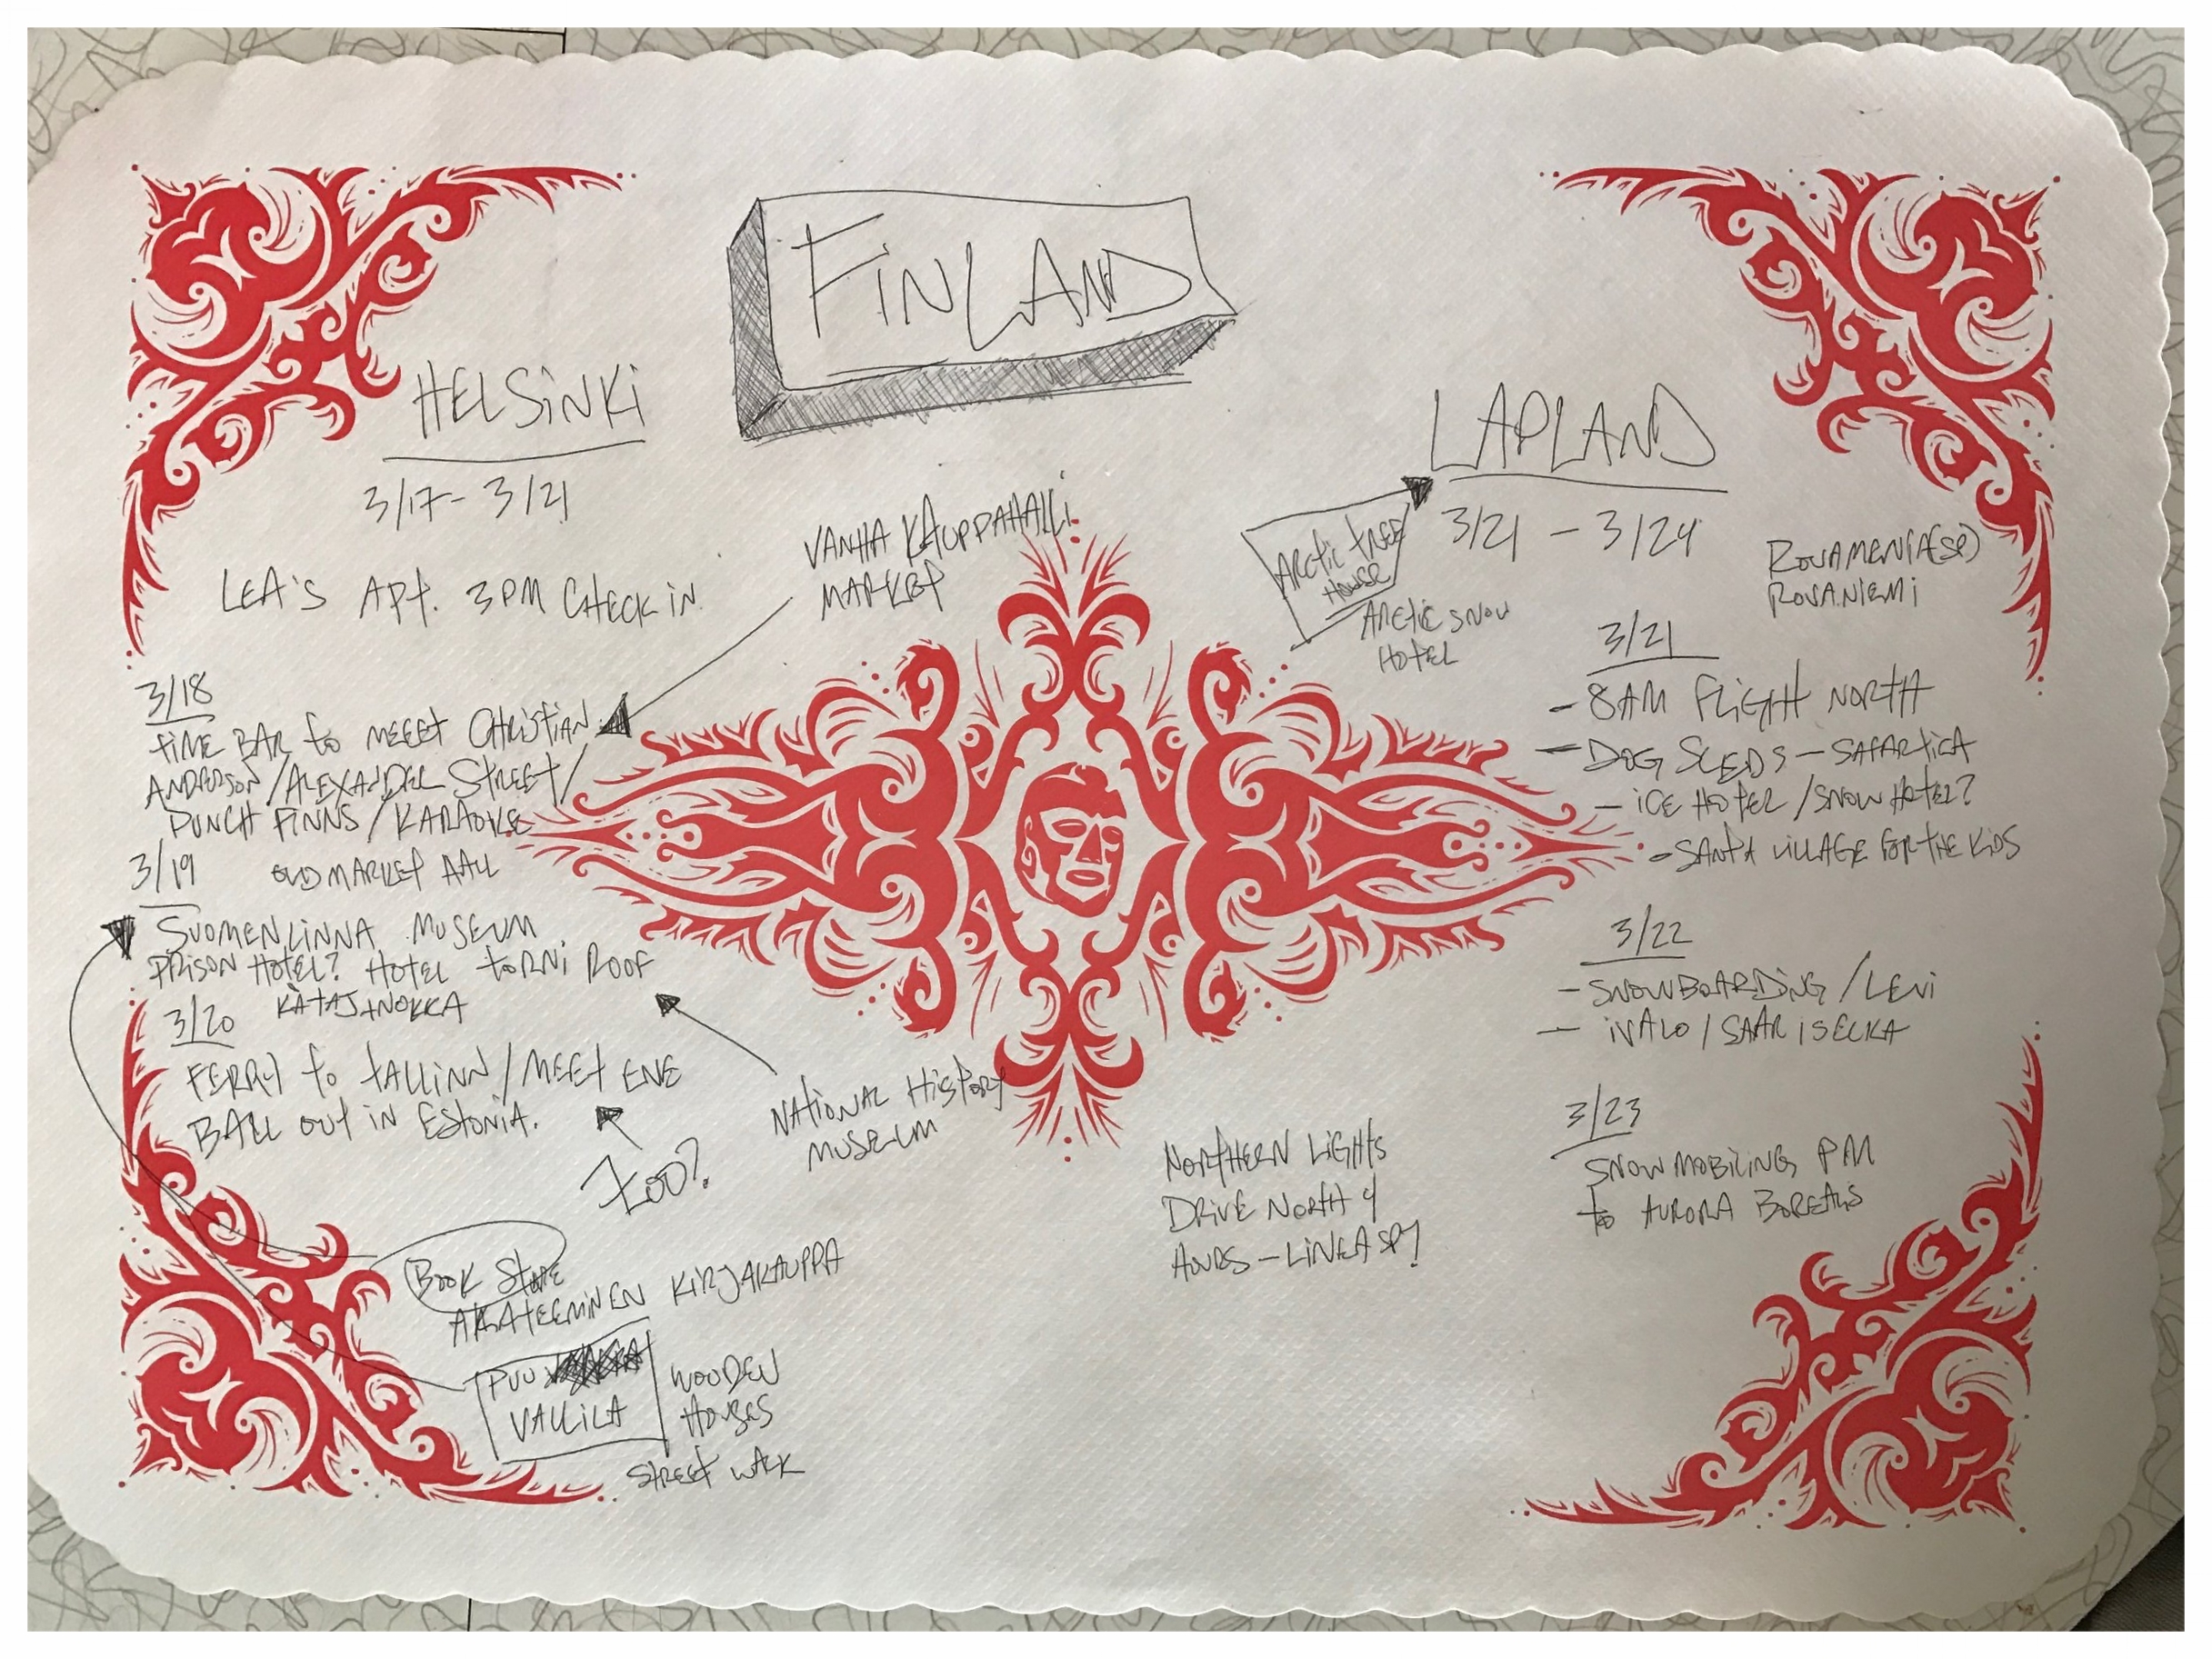 FINLAND
HELSINKI
3/17 - 3/21
LEA'S APT. 3PM CHECK IN
VANHA KAUPPAHALLI
MARKET
3/18
TIME BAR TO MEEET CHRISTIAN
ANDERSON / ALEXANDER STREET /
PUNCH FINNS / KARAOKE
3/19
OLD MARKET HALL
SUOMENLINNA MUSEUM
PRISON HOTEL? HOTEL TORNI ROOF
KATAJANOKKA
3/20
FERRY TO TALLINN / MEET ENE
BALL OUT IN ESTONIA.
ZOO?
NATIONAL HISTORY
MUSEUM
BOOK STORE
AKATEEMINEN KIRJAKAUPPA
PUU
VALLILA
WOODEN
HOUSES
STREET WALK
LAPLAND
3/21 - 3/24
ARCTIC TREE
HOUSE
ARCTIC SNOW
HOTEL
ROVAMENIA(SP)
ROVANIEMI
3/21
- 8AM FLIGHT NORTH
- DOG SLEDS - SAFARTICA
- ICE HOTEL / SNOW HOTEL?
- SANTA VILLAGE FOR THE KIDS
3/22
- SNOWBOARDING / LEVI
- IVALO / SAARISELKA
3/23
SNOWMOBILING PM
TO AURORA BOREALIS
NORTHERN LIGHTS
DRIVE NORTH 4
HOURS - LINEA SP?